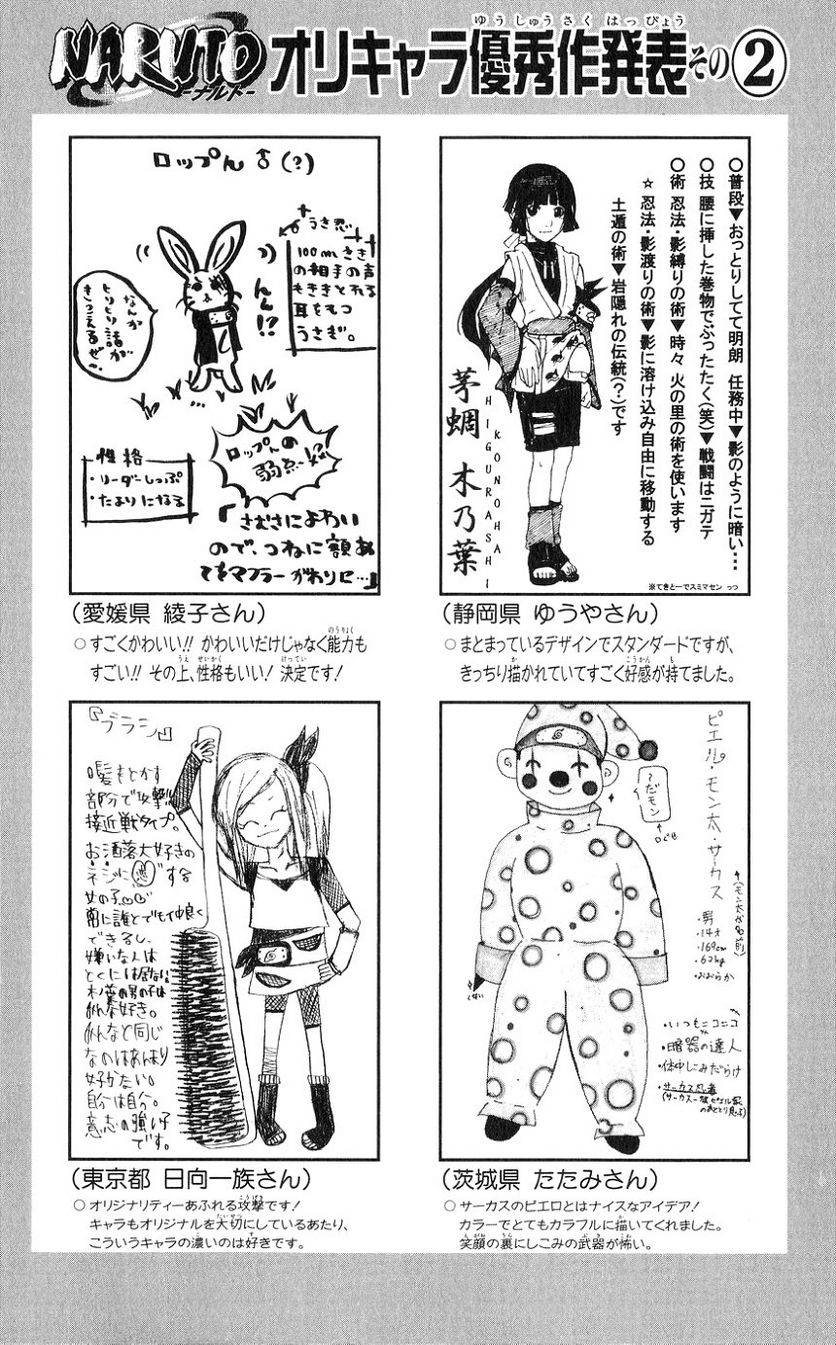 ゆうしゅうさくはっぴょう
NARUTO
-ナルト-
オリキャラ優秀作発表その②
ロップん ♂(?)
うさ忍
100mさき
の相手の声
もききとれる
耳をもつ
うさぎ。
なんか
ヒソヒソ話が
きこえるぜ〜
ん〜!?
性格
・リーダーしっぷ
・たよりになる
ロップんの
弱点…
「さむさによわい
ので、つねに額あ
てをマフラーがわりに…」
(愛媛県 綾子さん)
○すごくかわいい!! かわいいだけじゃなく能力も
すごい!! その上、性格もいい! 決定です!
○普段▼おっとりしてて明朗 任務中▼影のように暗い…
○技 腰に挿した巻物でぶったたく(笑)▼戦闘はニガテ
○術 忍法・影縛りの術▼時々 火の里の術を使います
☆ 忍法・影渡りの術▼影に溶け込み自由に移動する
土遁の術▼岩隠れの伝統(?)です
茅蜩 木乃葉
HIGURASHI
KONOHA
※てきとーでスミマセン っっ
(静岡県 ゆうやさん)
○まとまっているデザインでスタンダードですが、
きっちり描かれていてすごく好感が持てました。
『ブラシ』
髪もとかす
部分で攻撃!!
接近戦タイプ。
お洒落大好きの
ネジに恋する
女の子
常に誰とでも仲良く
できるし、
嫌いな人は
とくには居ない
木ノ葉の男の子は
みんな好き。
みんなと同じ
なのはあんまり
好かない。
自分は自分。
意志の強い子
です。
(東京都 日向一族さん)
○オリジナリティーあふれる攻撃です!
キャラもオリジナルを大切にしているあたり、
こういうキャラの濃いのは好きです。
ピエル・モン太・サーカス
〜だモン
↑口ぐせ
↑(モン太が名前)
・男
・14才
・169cm
・62kg
・おおらか
・いつもニコニコ
・暗器の達人
・体中しこみだらけ
・サーカス忍者
(茨城県 たたみさん)
○サーカスのピエロとはナイスなアイデア!
カラーでとてもカラフルに描いてくれました。
笑顔の裏にしこみの武器が怖い。